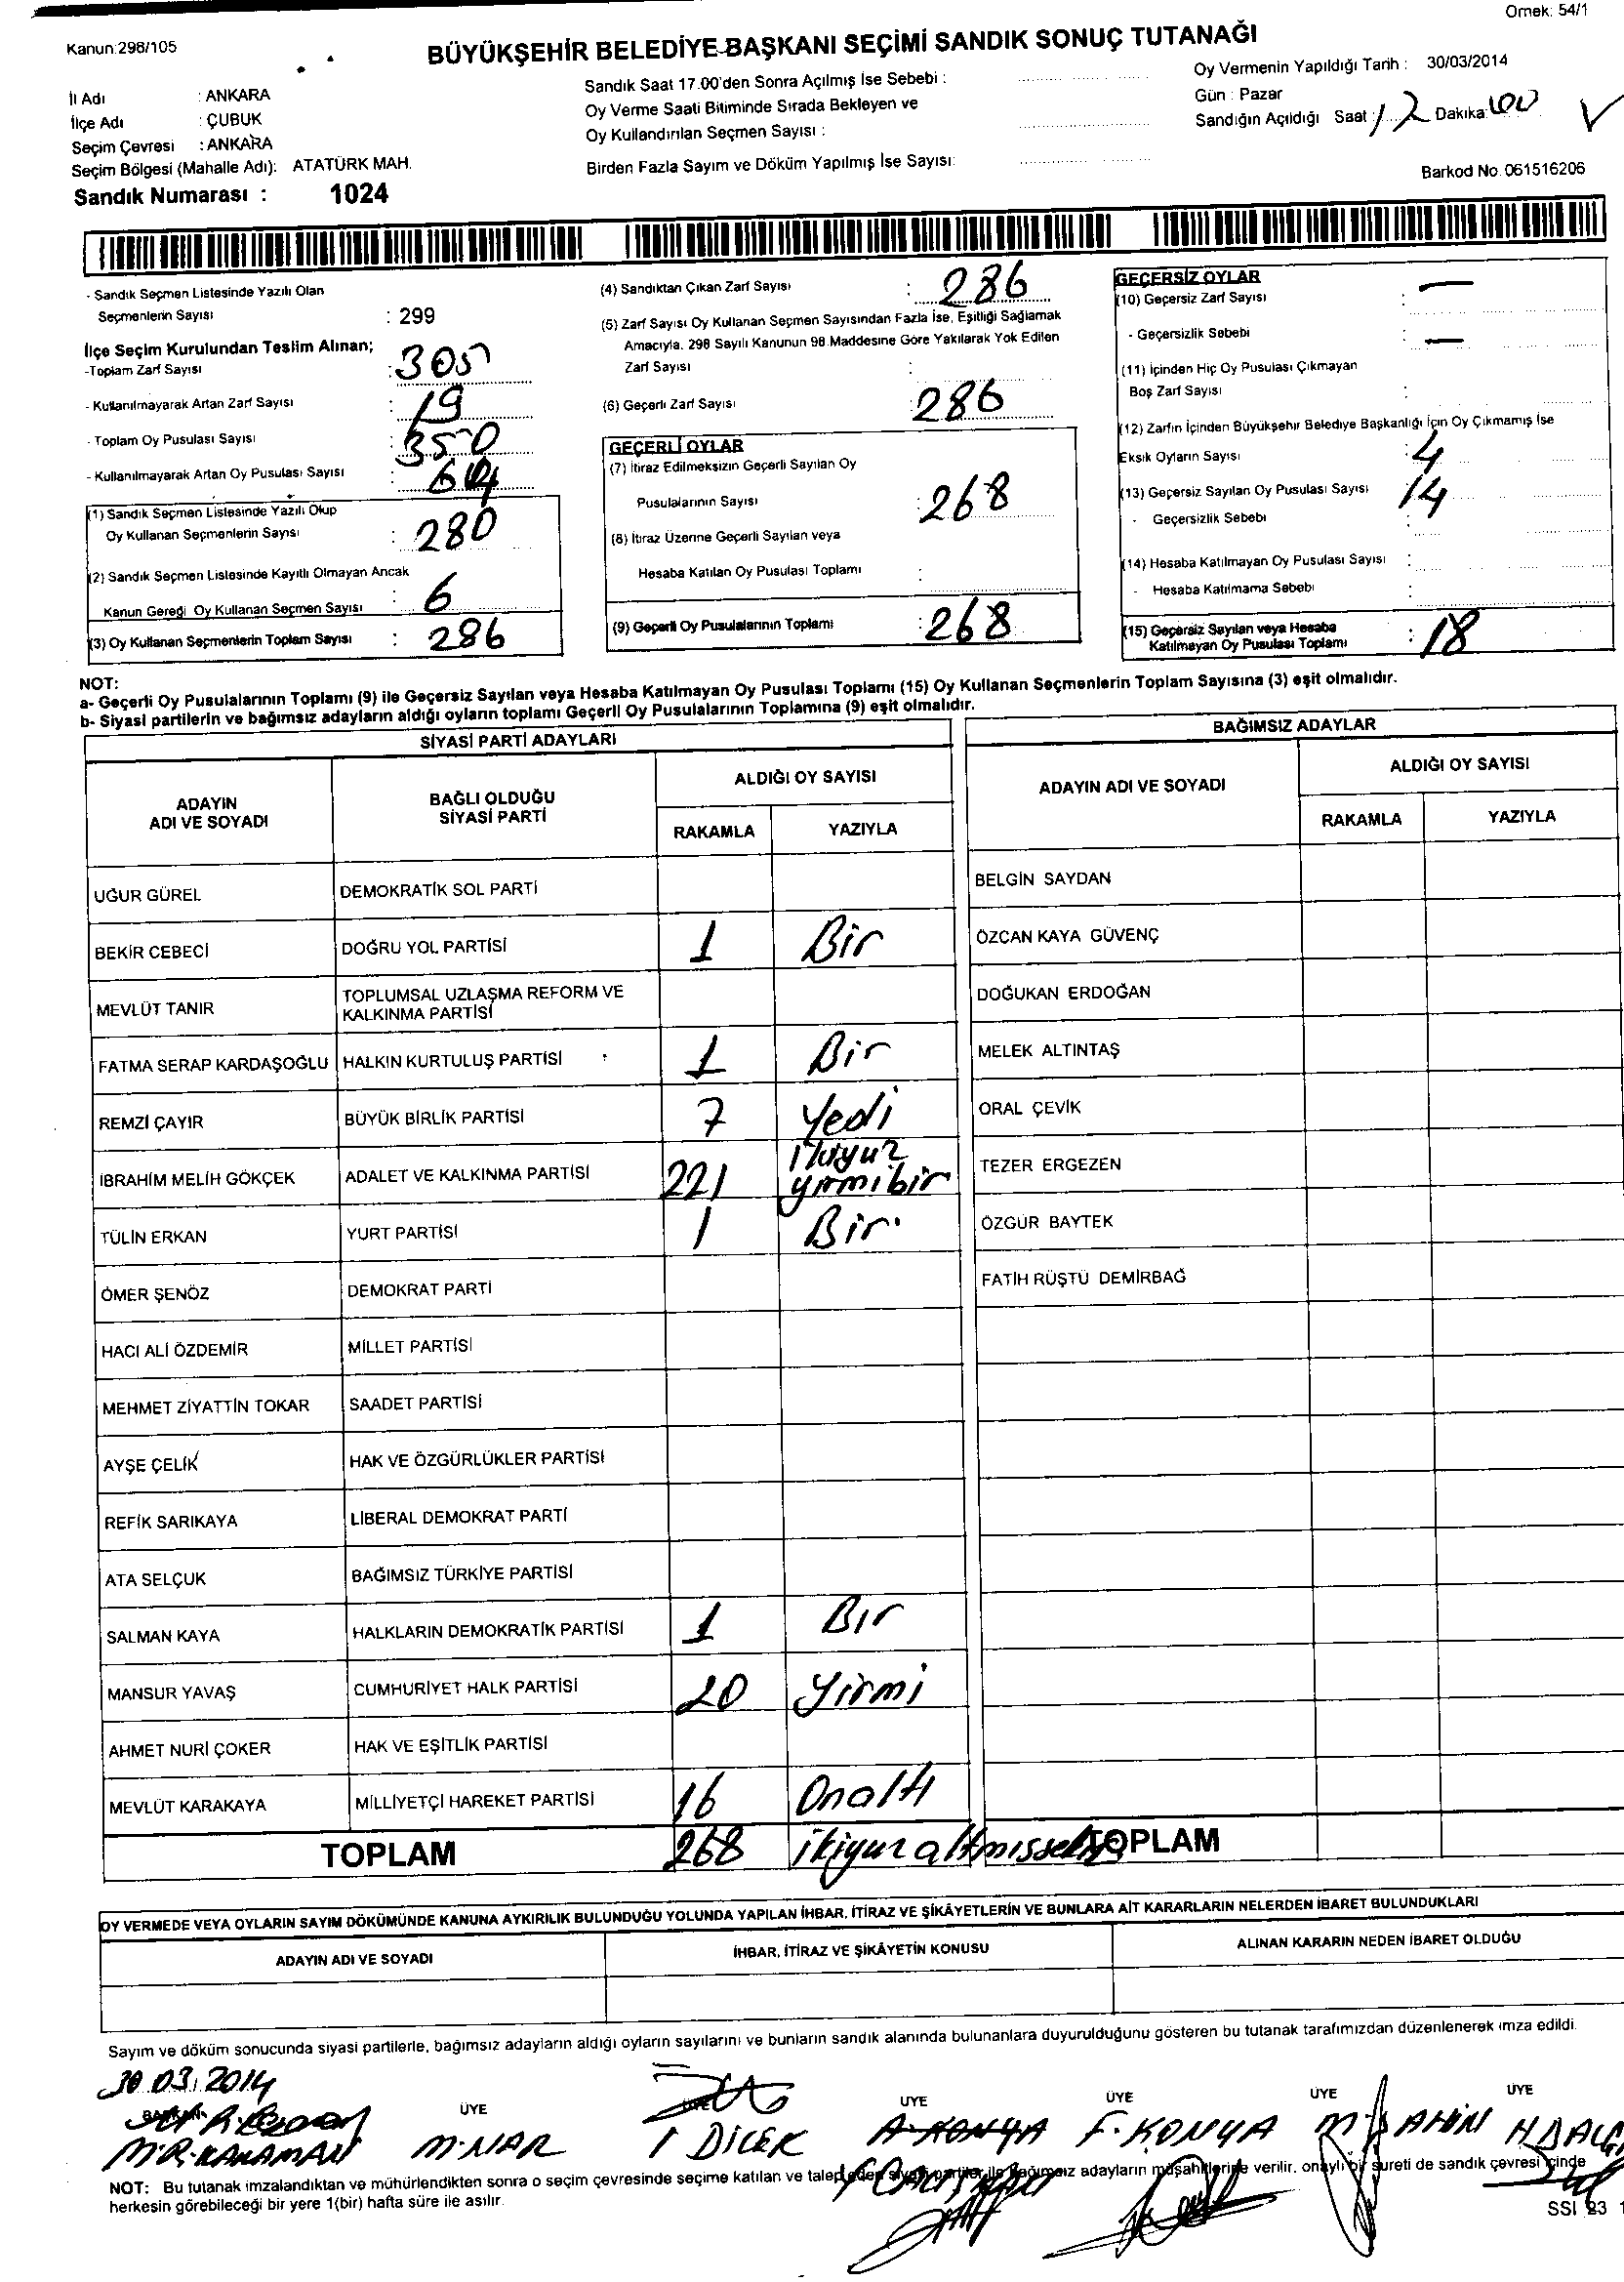 Örnek: 54/1
Kanun:298/105
BÜYÜKŞEHİR BELEDİYE BAŞKANI SEÇİMİ SANDIK SONUÇ TUTANAĞI
İl Adı : ANKARA
İlçe Adı : ÇUBUK
Seçim Çevresi : ANKARA
Seçim Bölgesi (Mahalle Adı): ATATÜRK MAH.
Sandık Numarası : 1024
Sandık Saat 17.00'den Sonra Açılmış İse Sebebi :
Oy Verme Saati Bitiminde Sırada Bekleyen ve
Oy Kullandırılan Seçmen Sayısı :
Birden Fazla Sayım ve Döküm Yapılmış İse Sayısı:
Oy Vermenin Yapıldığı Tarih : 30/03/2014
Gün : Pazar
Sandığın Açıldığı Saat : 12 Dakika: 00
Barkod No. 061516206
- Sandık Seçmen Listesinde Yazılı Olan
Seçmenlerin Sayısı : 299
İlçe Seçim Kurulundan Teslim Alınan;
-Toplam Zarf Sayısı : 305
- Kullanılmayarak Artan Zarf Sayısı : 19
- Toplam Oy Pusulası Sayısı : 350
- Kullanılmayarak Artan Oy Pusulası Sayısı : 64
(1) Sandık Seçmen Listesinde Yazılı Olup
Oy Kullanan Seçmenlerin Sayısı : 280
(2) Sandık Seçmen Listesinde Kayıtlı Olmayan Ancak
Kanun Gereği Oy Kullanan Seçmen Sayısı : 6
(3) Oy Kullanan Seçmenlerin Toplam Sayısı : 286
(4) Sandıktan Çıkan Zarf Sayısı : 286
(5) Zarf Sayısı Oy Kullanan Seçmen Sayısından Fazla İse, Eşitliği Sağlamak
Amacıyla, 298 Sayılı Kanunun 98.Maddesine Göre Yakılarak Yok Edilen
Zarf Sayısı :
(6) Geçerli Zarf Sayısı 286
GEÇERLİ OYLAR
(7) İtiraz Edilmeksizin Geçerli Sayılan Oy
Pusulalarının Sayısı : 268
(8) İtiraz Üzerine Geçerli Sayılan veya
Hesaba Katılan Oy Pusulası Toplamı :
(9) Geçerli Oy Pusulalarının Toplamı : 268
GEÇERSİZ OYLAR
(10) Geçersiz Zarf Sayısı : —
- Geçersizlik Sebebi : —
(11) İçinden Hiç Oy Pusulası Çıkmayan
Boş Zarf Sayısı :
(12) Zarfın İçinden Büyükşehir Belediye Başkanlığı İçin Oy Çıkmamış İse
Eksik Oyların Sayısı : 4
(13) Geçersiz Sayılan Oy Pusulası Sayısı 14
- Geçersizlik Sebebi :
(14) Hesaba Katılmayan Oy Pusulası Sayısı :
- Hesaba Katılmama Sebebi :
(15) Geçersiz Sayılan veya Hesaba
Katılmayan Oy Pusulası Toplamı : 18
NOT:
a- Geçerli Oy Pusulalarının Toplamı (9) ile Geçersiz Sayılan veya Hesaba Katılmayan Oy Pusulası Toplamı (15) Oy Kullanan Seçmenlerin Toplam Sayısına (3) eşit olmalıdır.
b- Siyasi partilerin ve bağımsız adayların aldığı oyların toplamı Geçerli Oy Pusulalarının Toplamına (9) eşit olmalıdır.
SİYASİ PARTİ ADAYLARI
ADAYIN ADI VE SOYADI BAĞLI OLDUĞU SİYASİ PARTİ ALDIĞI OY SAYISI
RAKAMLA YAZIYLA
UĞUR GÜREL DEMOKRATİK SOL PARTİ
BEKİR CEBECİ DOĞRU YOL PARTİSİ 1 Bir
MEVLÜT TANIR TOPLUMSAL UZLAŞMA REFORM VE KALKINMA PARTİSİ
FATMA SERAP KARDAŞOĞLU HALKIN KURTULUŞ PARTİSİ 1 Bir
REMZİ ÇAYIR BÜYÜK BİRLİK PARTİSİ 7 Yedi
İBRAHİM MELİH GÖKÇEK ADALET VE KALKINMA PARTİSİ 221 ikiyüz yirmibir
TÜLİN ERKAN YURT PARTİSİ 1 Bir
ÖMER ŞENÖZ DEMOKRAT PARTİ
HACI ALİ ÖZDEMİR MİLLET PARTİSİ
MEHMET ZİYATTİN TOKAR SAADET PARTİSİ
AYŞE ÇELİK HAK VE ÖZGÜRLÜKLER PARTİSİ
REFİK SARIKAYA LİBERAL DEMOKRAT PARTİ
ATA SELÇUK BAĞIMSIZ TÜRKİYE PARTİSİ
SALMAN KAYA HALKLARIN DEMOKRATİK PARTİSİ 1 Bır
MANSUR YAVAŞ CUMHURİYET HALK PARTİSİ 20 Yirmi
AHMET NURİ ÇOKER HAK VE EŞİTLİK PARTİSİ
MEVLÜT KARAKAYA MİLLİYETÇİ HAREKET PARTİSİ 16 Onaltı
TOPLAM 268 ikiyuz altmıssekiz
BAĞIMSIZ ADAYLAR
ADAYIN ADI VE SOYADI ALDIĞI OY SAYISI
RAKAMLA YAZIYLA
BELGİN SAYDAN
ÖZCAN KAYA GÜVENÇ
DOĞUKAN ERDOĞAN
MELEK ALTINTAŞ
ORAL ÇEVİK
TEZER ERGEZEN
ÖZGÜR BAYTEK
FATİH RÜŞTÜ DEMİRBAĞ
TOPLAM
OY VERMEDE VEYA OYLARIN SAYIM DÖKÜMÜNDE KANUNA AYKIRILIK BULUNDUĞU YOLUNDA YAPILAN İHBAR, İTİRAZ VE ŞİKÂYETLERİN VE BUNLARA AİT KARARLARIN NELERDEN İBARET BULUNDUKLARI
ADAYIN ADI VE SOYADI İHBAR, İTİRAZ VE ŞİKÂYETİN KONUSU ALINAN KARARIN NEDEN İBARET OLDUĞU
Sayım ve döküm sonucunda siyasi partilerle, bağımsız adayların aldığı oyların sayılarını ve bunların sandık alanında bulunanlara duyurulduğunu gösteren bu tutanak tarafımızdan düzenlenerek imza edildi.
30.03.2014
BAŞKAN ÜYE ÜYE ÜYE ÜYE ÜYE ÜYE
M.R.KARAMAN M.NAR İ DİCEK A.KONYA F.KONYA M.ŞAHİN
NOT: Bu tutanak imzalandıktan ve mühürlendikten sonra o seçim çevresinde seçime katılan ve talep eden siyasi partiler ile bağımsız adayların müşahitlerine verilir, onaylı bir sureti de sandık çevresi içinde
herkesin görebileceği bir yere 1(bir) hafta süre ile asılır.
SSI 23 1